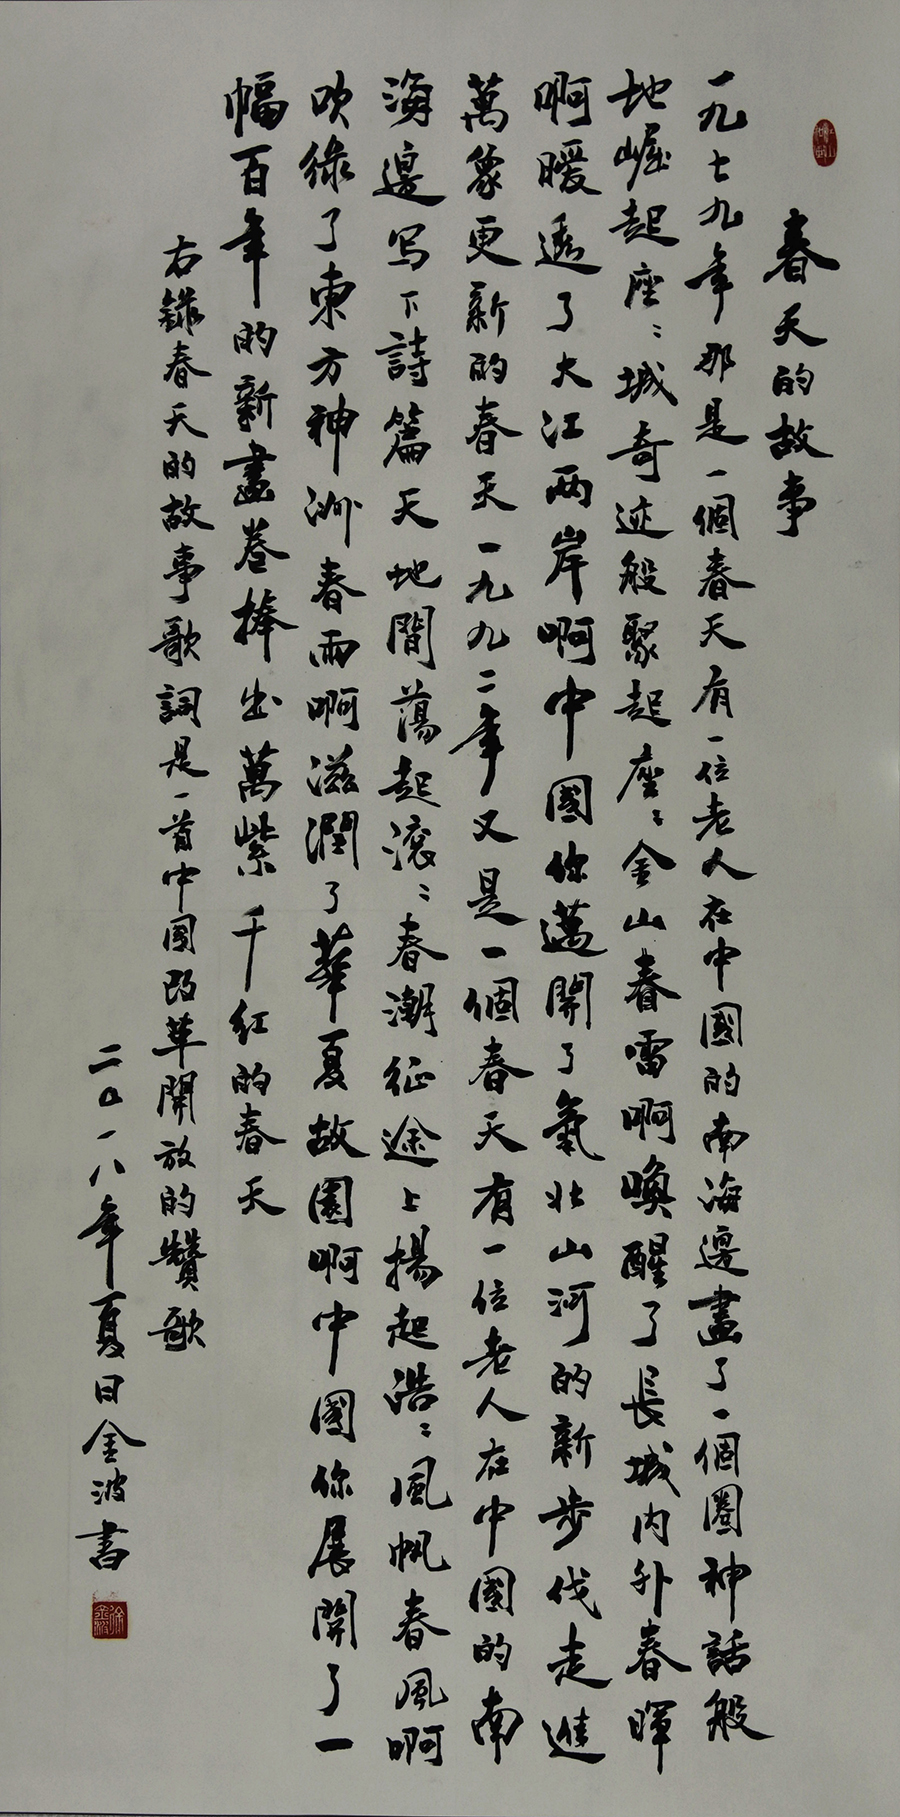 春天的故事
一九七九年那是一個春天有一位老人在中國的南海邊畫了一個圈神話般
地崛起座〻城奇迹般聚起座〻金山春雷啊喚醒了長城内外春暉
啊暖透了大江两岸啊中國你邁開了氣壮山河的新步伐走進
萬象更新的春天一九九二年又是一個春天有一位老人在中國的南
海邊写下詩篇天地間蕩起滚〻春潮征途上揚起浩〻風帆春風啊
吹綠了東方神洲春雨啊滋潤了華夏故園啊中國你展開了一
幅百年的新畫卷捧出萬紫千红的春天
右錄春天的故事歌詞是一首中國改革開放的贊歌
二〇一八年夏日金波書